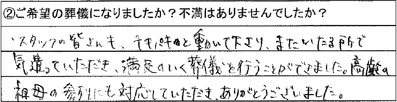 ②ご希望の葬儀になりましたか?不満はありませんでしたか?
・スタッフの皆さんも、テキパキと動いて下さり、またいたる所で
気遣っていただき、満足のいく葬儀を行うことができました。高齢の
祖母の参列にも対応していただき、ありがとうございました。